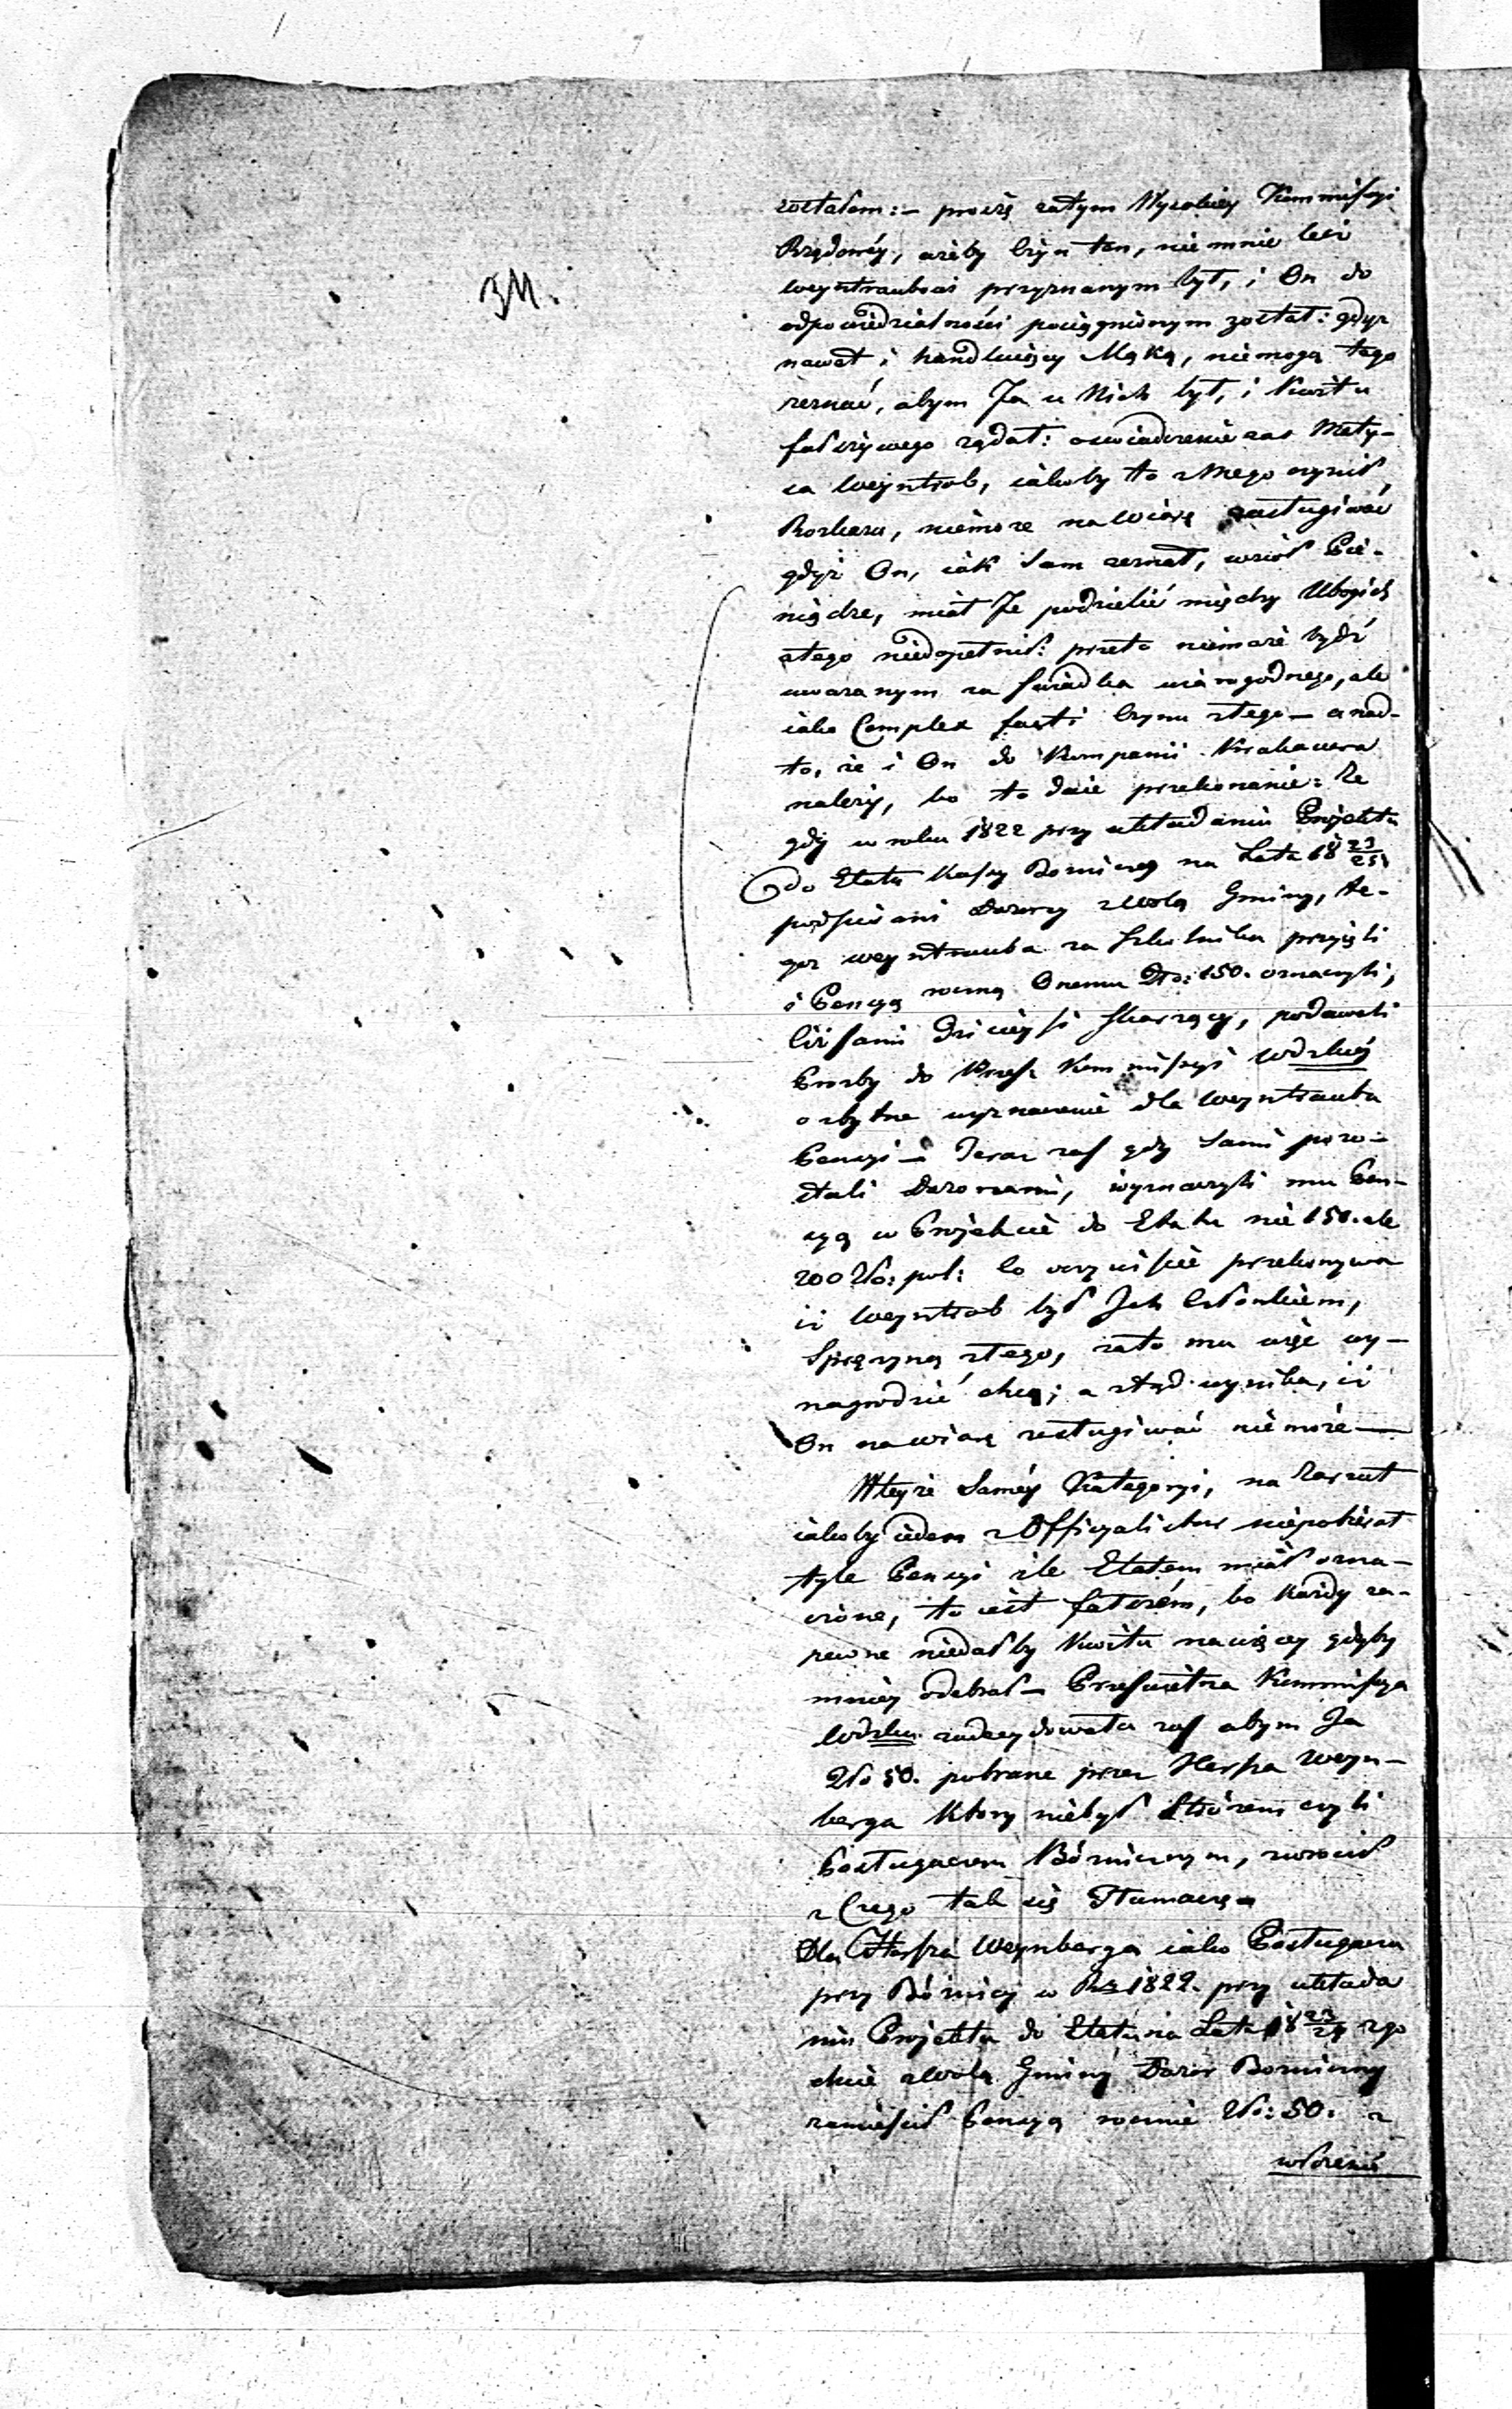 34.
zostałem:– proszę zatym Wysokiey Kommissyi
Rządowéy, ażeby Czyn ten, nie mnie lecz
Weyntraubowi przyznanym był, i On do
odpowiedzialności pociągnionym został: gdyz
nawet i handluiący Mąką, niemogą tego
zeznać, abym Ja u Nich był, i Kwitu
fałszywego żądał: oswiadczenie zas Moty-
ia Weyntrob, iakoby to z Mego czynił
Rozkazu, niemoze na Wiarę zasługiwać
gdyż On, iak Sam zeznał, wziął Pie-
niądze, miał Je podzielić między Ubogich
atego niedopełnił: przeto niemoże bydź
uwazanym za Swiadka wiarogodnego, ale
iako Complex facti Czynu złego – a nad-
to, że i On do Kompanii Krakauera
należy, bo to daie przekonanie: Że
gdy w roku 1822 przy układaniu Projektu
do Etatu Kassy Boznicznej na Lata 18 23/25
podpisani Dozorcy z Wolą Gminy, te-
goz Weyntrauba za Szkolnika przyięli
i Pensyą roczną Onemu Złp: 150. oznaczyli,
Ciż sami dzisieysi skarzący, podawali
Prosby do Przes. Kommissyi Wdzkiéj
o zbytne wyznaczenie dla Weyntrauba
Pensyi – Teraz zas gdy Sami pozo-
stali Dozorcami, wyznaczyli mu Pen-
syą w Projekcie do Etatu nie 150. ale
200 Złp: pol: Co oczywiście przekonywa
iż Weyntrob był Ich Członkiem,
Sprężyną złego, zato mu więc wy-
nagrodzić chcą; a ztąd wynika, iż
On na wiarę zasługiwać niemoże –
Wteyże Saméy Kategoryi, na Zarzut
iakoby ieden z Officyalistow niepobierał
tyle Pensyi ile Etatem miał ozna-
czone, to iest fałszém, bo każdy za-
pewne niedałby Kwitu na więcey gdyby
mniéy odebrał – Prześwietna Kommissya
Wdzka zadecydowała zas abym Ja
Złp 50. pobrane przez Herszka Weyn-
berga który niebył Stróżem czyli
Posługaczem Bóżnicznym, zwrócił
z Czego tak się Tłumaczę –
Dla Herszka Weynberga iako Posługacza
przy Bóżnicy w Rz 1822. przy układa
niu Projektu do Etatu na Lata 18 23/25 zgo
dnie z Wolą Gminy Dozór Bozniczny
zamieścił Pensyą rocznie Złp: 50. z
włożeniem